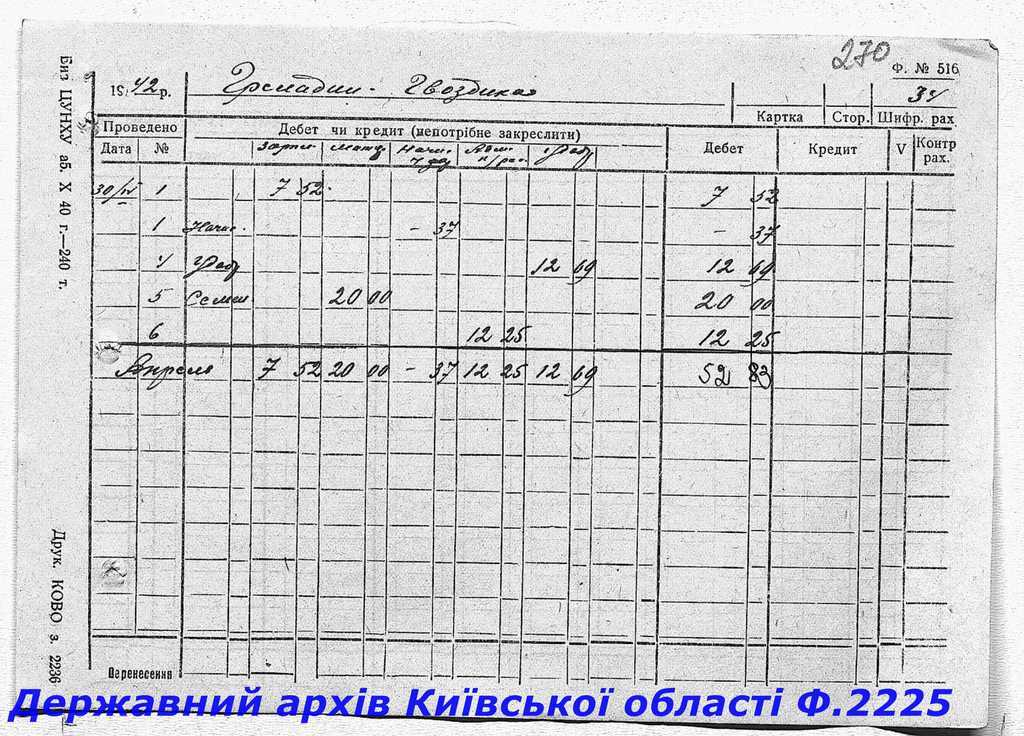 270
Ф. № 516
1942 р. Гвоздика
34
Картка Стор. Шифр. рах
Проведено Дебет чи кредит (непотрібне закреслити) Дебет Кредит V Контр рах.
Дата №
30/IV 1 7 52 7 52
1 Начис. - 37 - 37
4 12 69 12 69
5 Семен. 20 00 20 00
6 12 25 12 25
Апрель 7 52 20 00 - 37 12 25 12 69 52 83
Перенесення
Биз ЦУНХУ аб. X 40 г.—240 т.
Друк. КОВО з. 2236
Державний архів Київської області Ф.2225